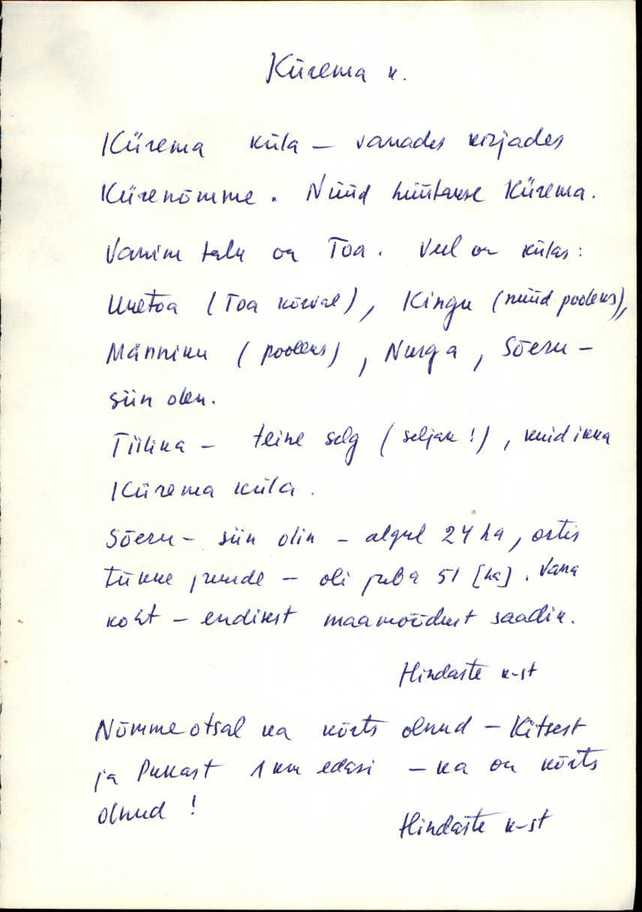 Kürema k.
Kürema küla – vanades kirjades
Kürenõmme. Nüüd hüütakse Kürema.
Vanim talu on Toa. Veel on külas:
Uuetoa (Toa kõrval), Kingu (nüüd pooleks),
Männiku (pooleks), Nurga, Sõeru –
siin olen.
Tiilika – teine selg (seljak!), kuid ikka
Kürema küla.
Sõeru – siin olin – algul 24 ha, ostis
tükke juurde – oli juba 51 [ha]. Vana
koht – endisest maamõõdust saadik.
Hindaste k-st
Nõmme otsal ka kõrts olnud – Kitsest
ja Pukast 1 km edasi – ka on kõrts
olnud!
Hindaste k-st